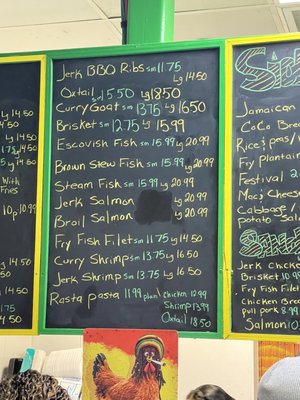 Jerk BBQ Ribs sm 11.75 Lg 14.50
Oxtail sm 15.50 Lg 18.50
Curry Goat sm 13.75 Lg 16.50
Brisket sm 12.75 Lg 15.99
Escovish Fish sm 15.99 Lg 20.99
Brown Stew Fish sm 15.99 Lg 20.99
Steam Fish sm 15.99 Lg 20.99
Jerk Salmon Lg 20.99
Broil Salmon Lg 20.99
Fry Fish Filet sm 11.75 Lg 14.50
Curry Shrimp sm 13.75 Lg 16.50
Jerk Shrimp sm 13.75 Lg 16.50
Rasta pasta 11.99 plain chicken 12.99
Shrimp 13.99
Oxtail 18.50
Lg 14.50
Lg 14.50
Lg 14.50
With
Fries
10p 10.99
Lg 14.50
Lg 14.50
Jamaican
CoCo Bre
Rice & pms/
Fry Plantain
Festival 2
Mac & Chees
Cabbage
potato Sal
Jerk Chick
Brisket 10.9
Fry Fish Filet
Chicken Brea
pull pork 8.99
Salmon 10